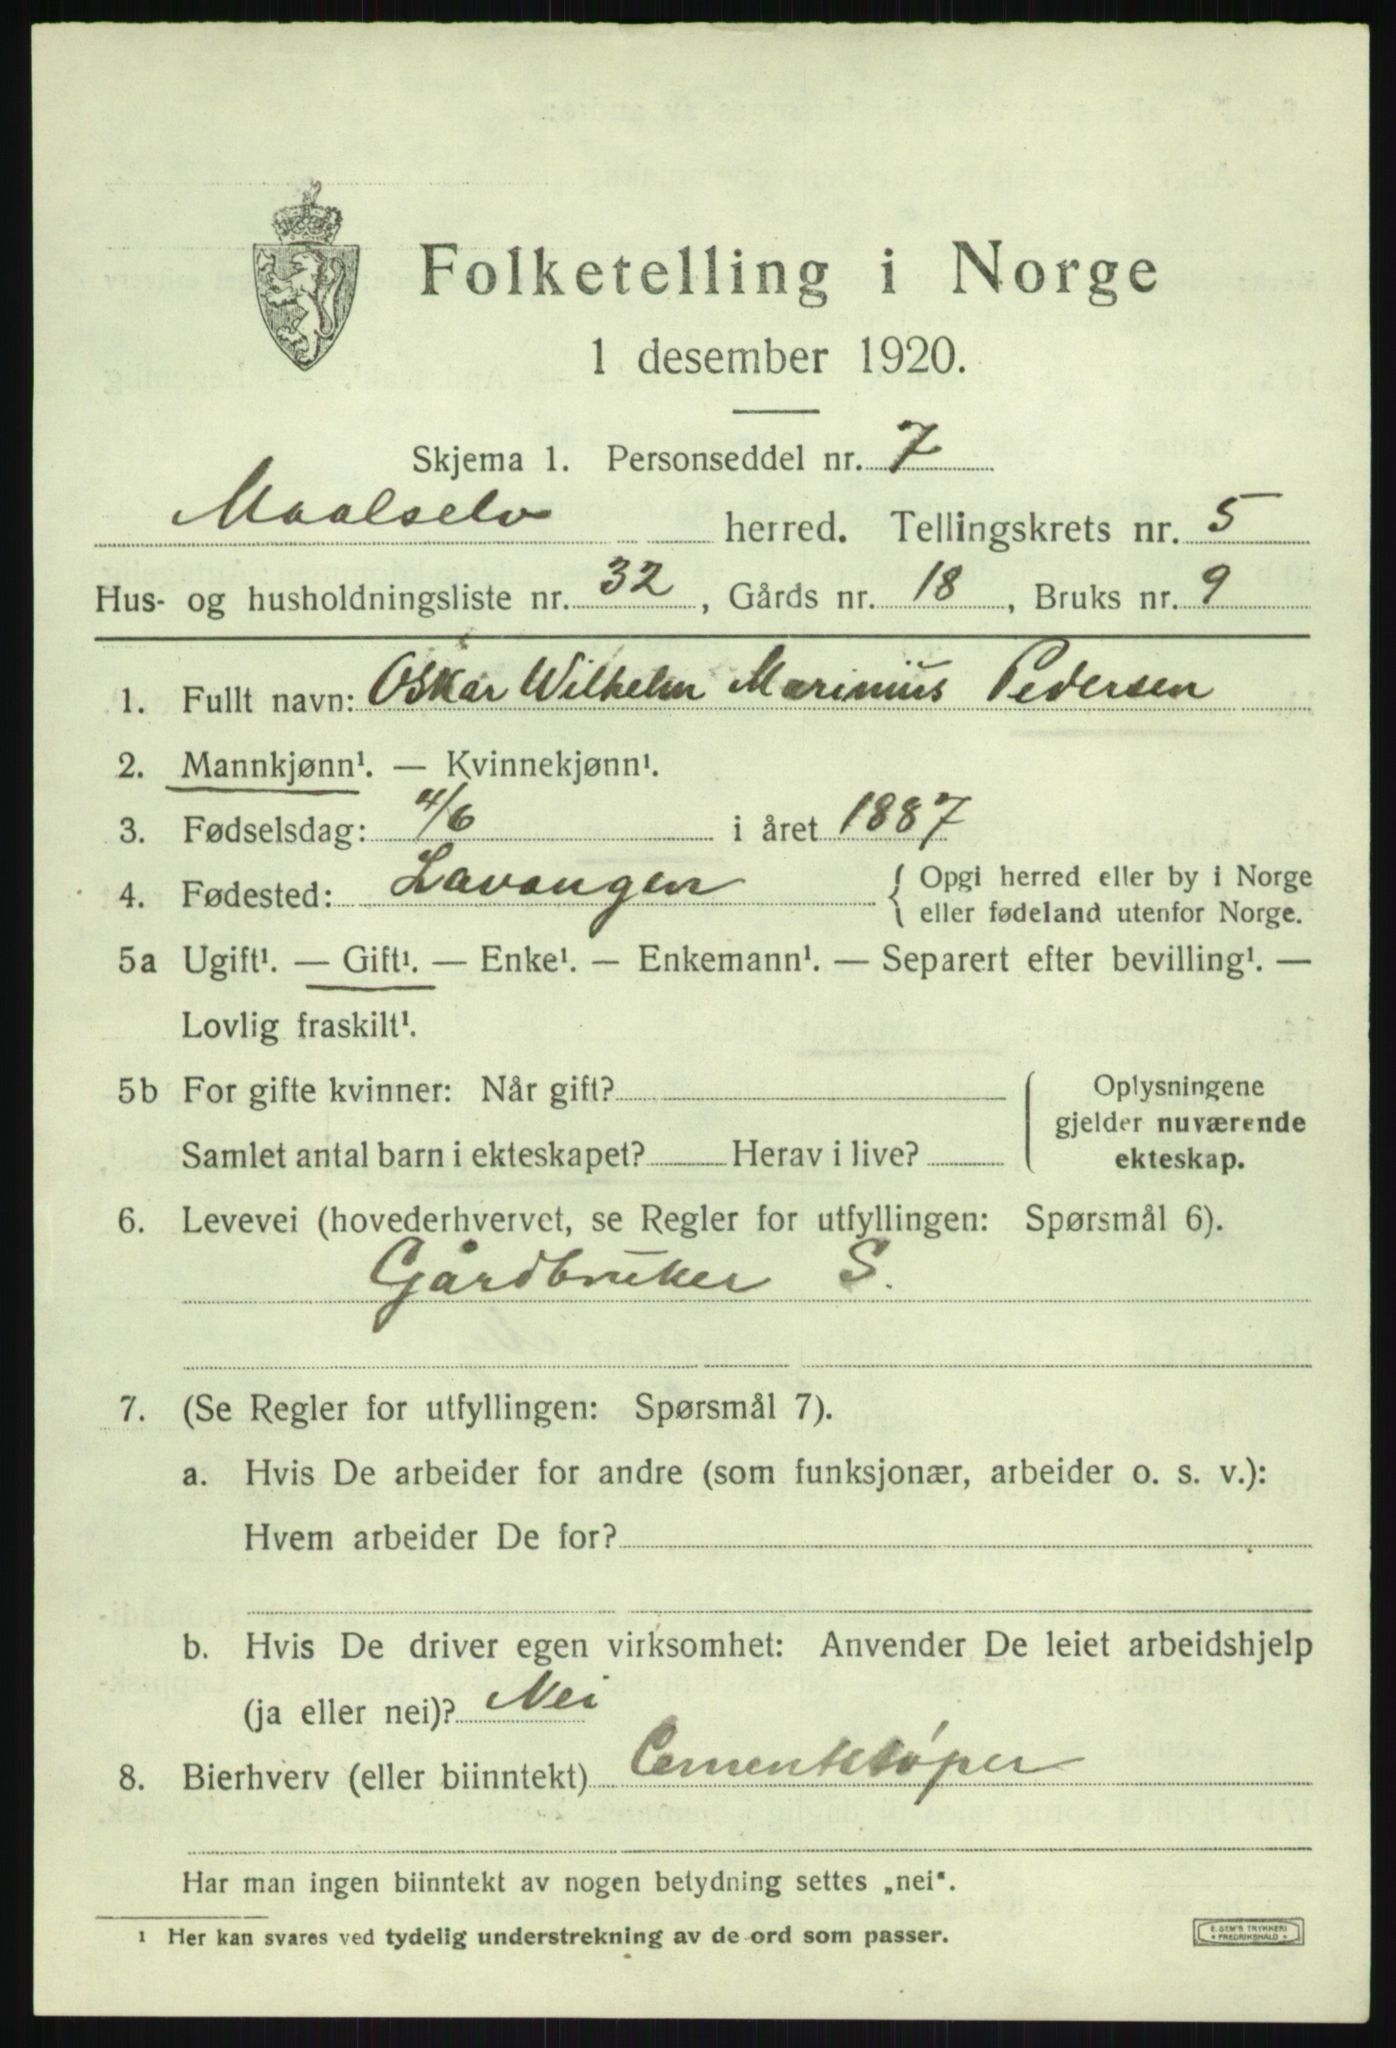 Folketelling i Norge
1 desember 1920.
Skjema 1. Personseddel nr. 7
Maalselv herred. Tellingskrets nr. 5
Hus- og husholdningsliste nr. 32, Gårds nr. 18, Bruks nr. 9
1. Fullt navn: Oskar Wilhelm Marinius Pedersen
2. Mannkjønn¹. — Kvinnekjønn¹.
3. Fødselsdag: 4/6 i året 1887
4. Fødested: Lavangen { Opgi herred eller by i Norge
eller fødeland utenfor Norge.
5a Ugift¹. — Gift¹. — Enke¹. — Enkemann¹. — Separert efter bevilling¹. —
Lovlig fraskilt¹.
5b For gifte kvinner: Når gift? Oplysningene
gjelder nuværende
Samlet antal barn i ekteskapet? Herav i live? ekteskap.
6. Levevei (hovederhvervet, se Regler for utfyllingen: Spørsmål 6).
Gårdbruker S.
7. (Se Regler for utfyllingen: Spørsmål 7).
a. Hvis De arbeider for andre (som funksjonær, arbeider o. s. v.):
Hvem arbeider De for?
b. Hvis De driver egen virksomhet: Anvender De leiet arbeidshjelp
(ja eller nei)? Nei
8. Bierhverv (eller biinntekt) Cementstøper
Har man ingen biinntekt av nogen betydning settes „nei“.
¹ Her kan svares ved tydelig understrekning av de ord som passer.
E. SEM'S TRYKKERI
FREDRIKSHALD